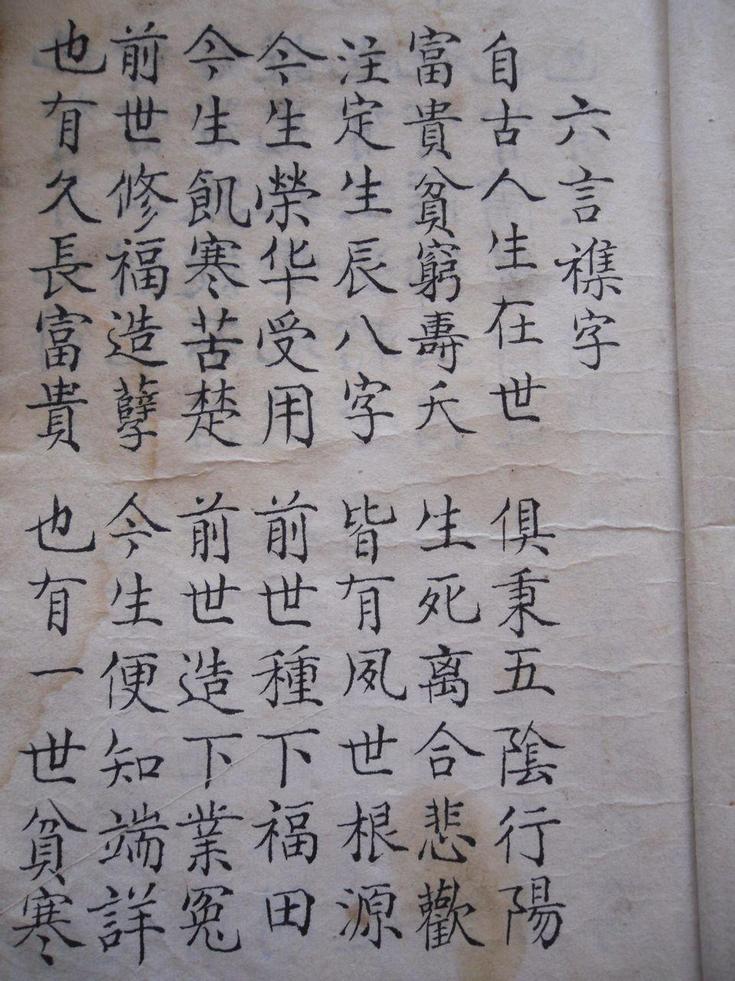 六言襍字
自古人生在世 俱秉五陰行陽
富貴貧窮壽夭 生死离合悲歡
注定生辰八字 皆有夙世根源
今生榮华受用 前世種下福田
今生飢寒苦楚 前世造下業冤
前世修福造孽 今生便知端詳
也有久長富貴 也有一世貧寒